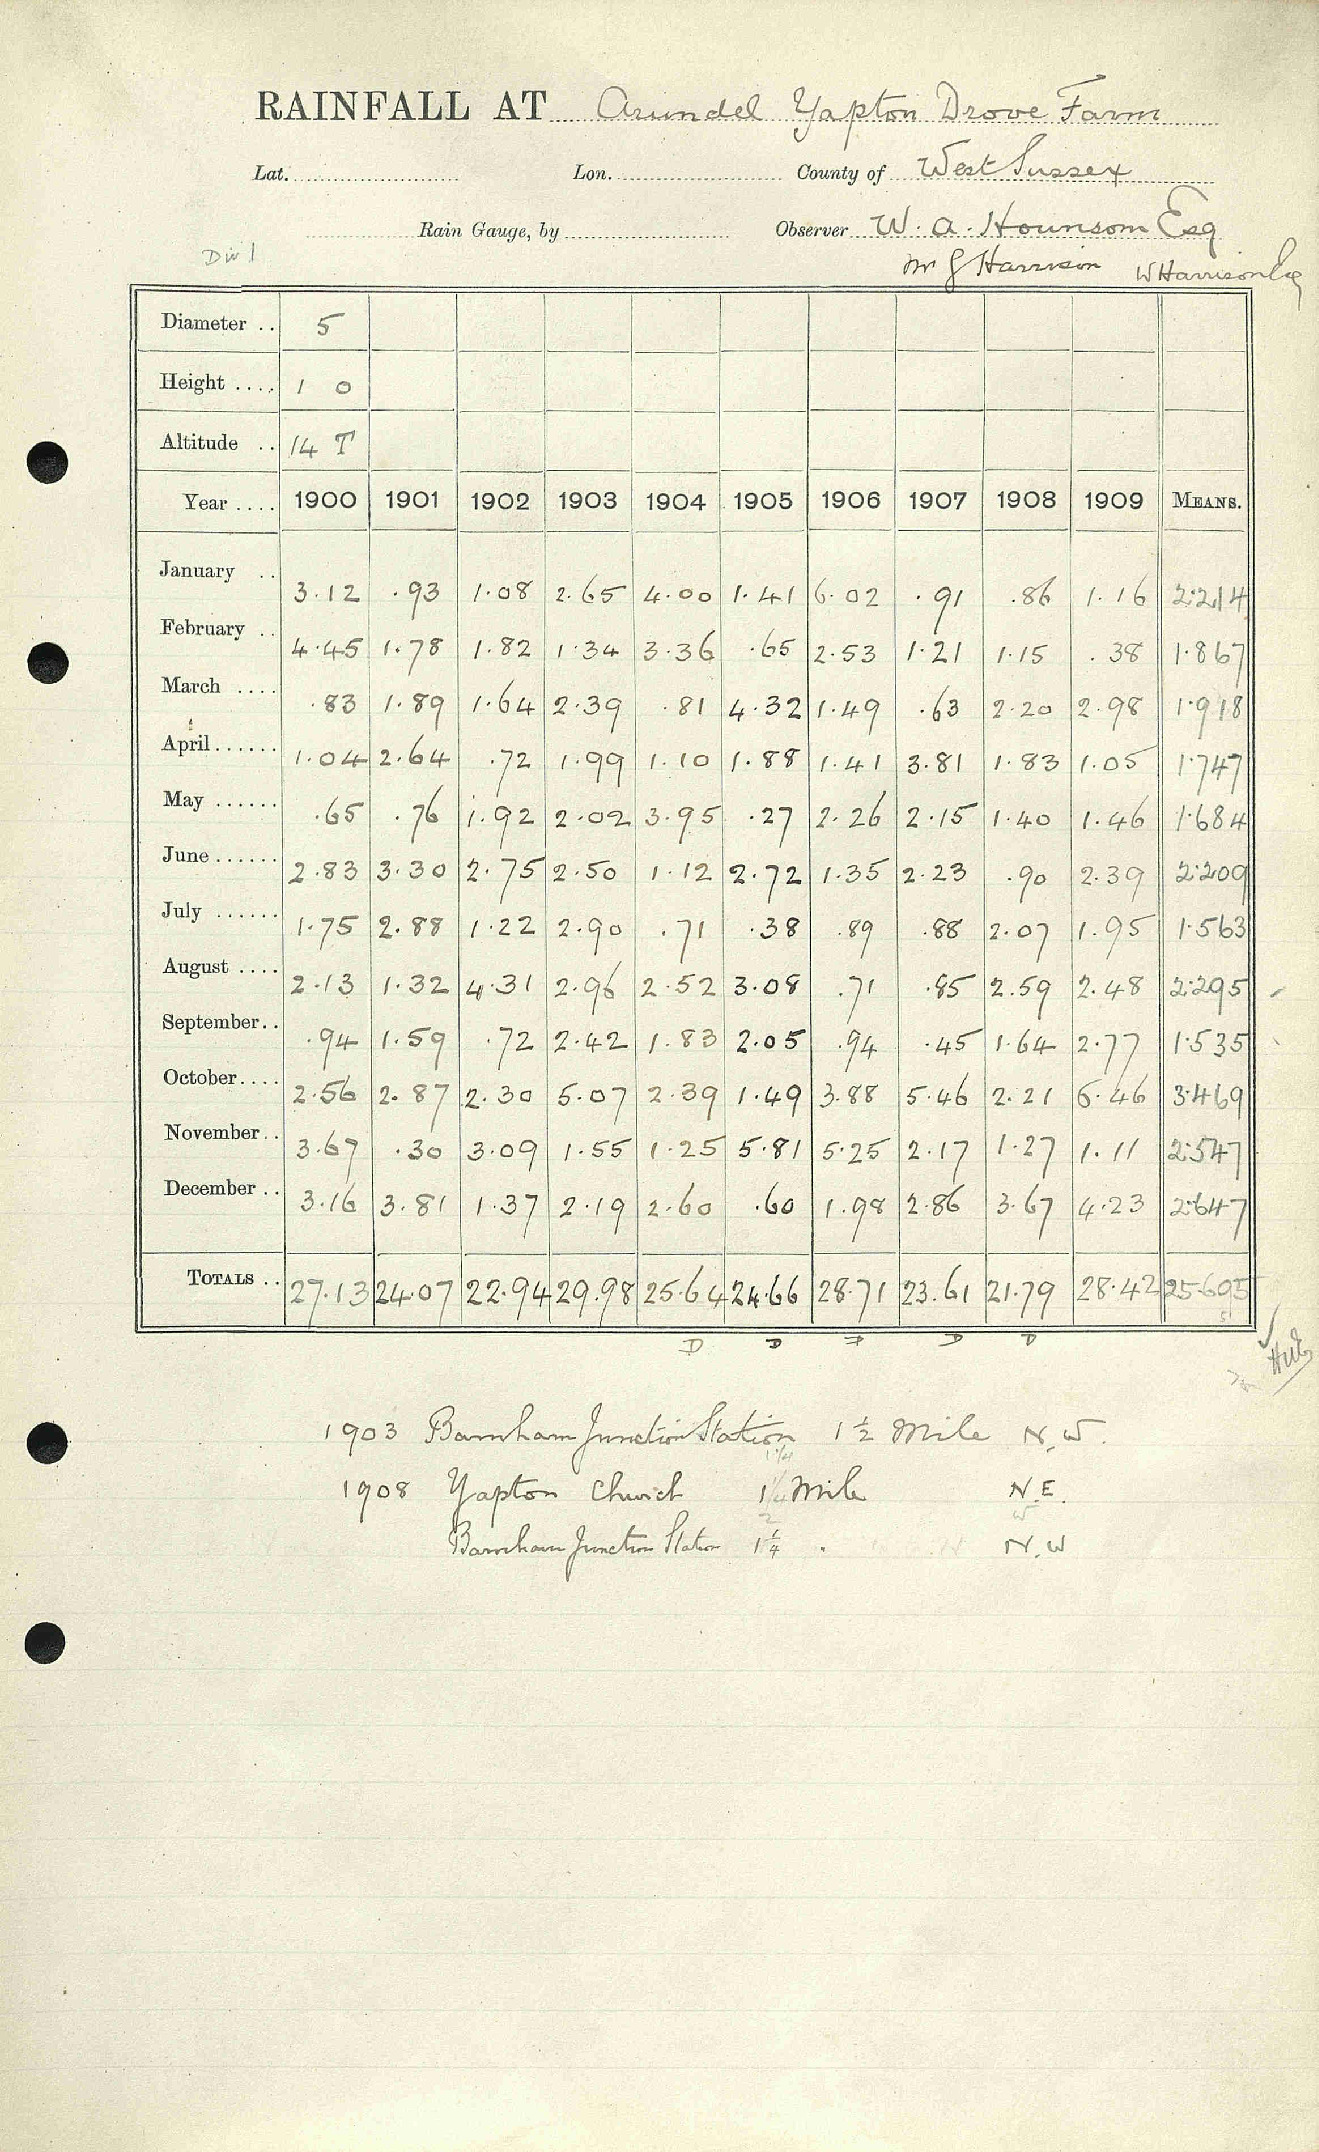 RAINFALL AT Arundel Yapton Drove Farm
Lat. Lon. County of West Sussex
Rain Gauge, by Observer W. A. Hounsom Esq
Div 1 Mr G Harrison W Harrison Esq
Diameter .. 5
Height .... 1 0
Altitude .. 14 T
Year .... 1900 1901 1902 1903 1904 1905 1906 1907 1908 1909 MEANS.
January .. 3.12 .93 1.08 2.65 4.00 1.41 6.02 .91 .86 1.16 2.214
February .. 4.45 1.78 1.82 1.34 3.36 .65 2.53 1.21 1.15 .38 1.867
March .... .83 1.89 1.64 2.39 .81 4.32 1.49 .63 2.20 2.98 1.918
April ...... 1.04 2.64 .72 1.99 1.10 1.88 1.41 3.81 1.83 1.05 1.747
May ...... .65 .76 1.92 2.02 3.95 .27 2.26 2.15 1.40 1.46 1.684
June ...... 2.83 3.30 2.75 2.50 1.12 2.72 1.35 2.23 .90 2.39 2.209
July ...... 1.75 2.88 1.22 2.90 .71 .38 .89 .88 2.07 1.95 1.563
August .... 2.13 1.32 4.31 2.96 2.52 3.08 .71 .85 2.59 2.48 2.295
September .. .94 1.59 .72 2.42 1.83 2.05 .94 .45 1.64 2.77 1.535
October .... 2.56 2.87 2.30 5.07 2.39 1.49 3.88 5.46 2.21 6.46 3.469
November .. 3.67 .30 3.09 1.55 1.25 5.81 5.25 2.17 1.27 1.11 2.547
December .. 3.16 3.81 1.37 2.19 2.60 .60 1.98 2.86 3.67 4.23 2.647
TOTALS .. 27.13 24.07 22.94 29.98 25.64 24.66 28.71 23.61 21.79 28.42 25.695
5
D D D D D
1903 Barnham Junction Station 1 1/2 Mile N.W.
1908 Yapton Church 1 1/4 Mile N.E.
Barnham Junction Station 1 1/4 " N.W